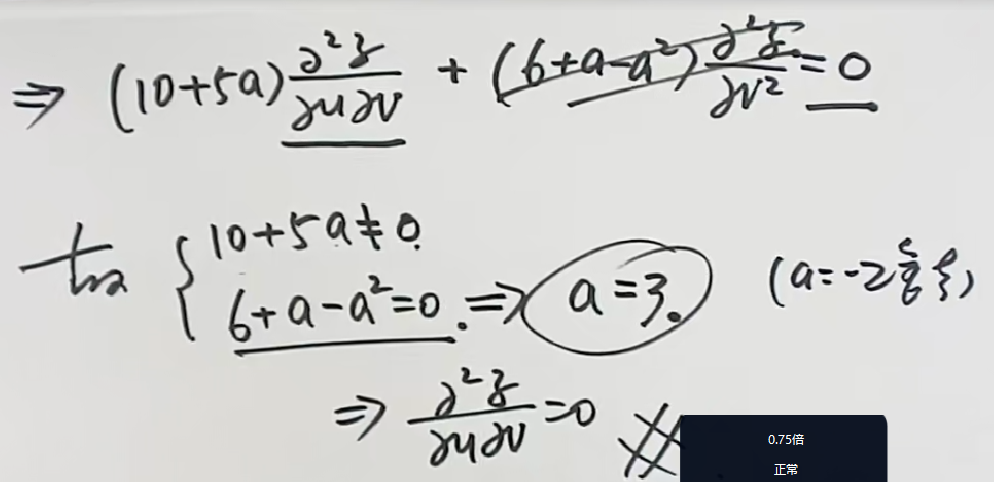 ⇒ (10+5a) ∂²z/∂u∂v + (6+a-a²) ∂²z/∂v² = 0
{ 10+5a≠0
6+a-a²=0. ⇒ a=3. (a=-2
⇒ ∂²z/∂u∂v =0
0.75倍
正常